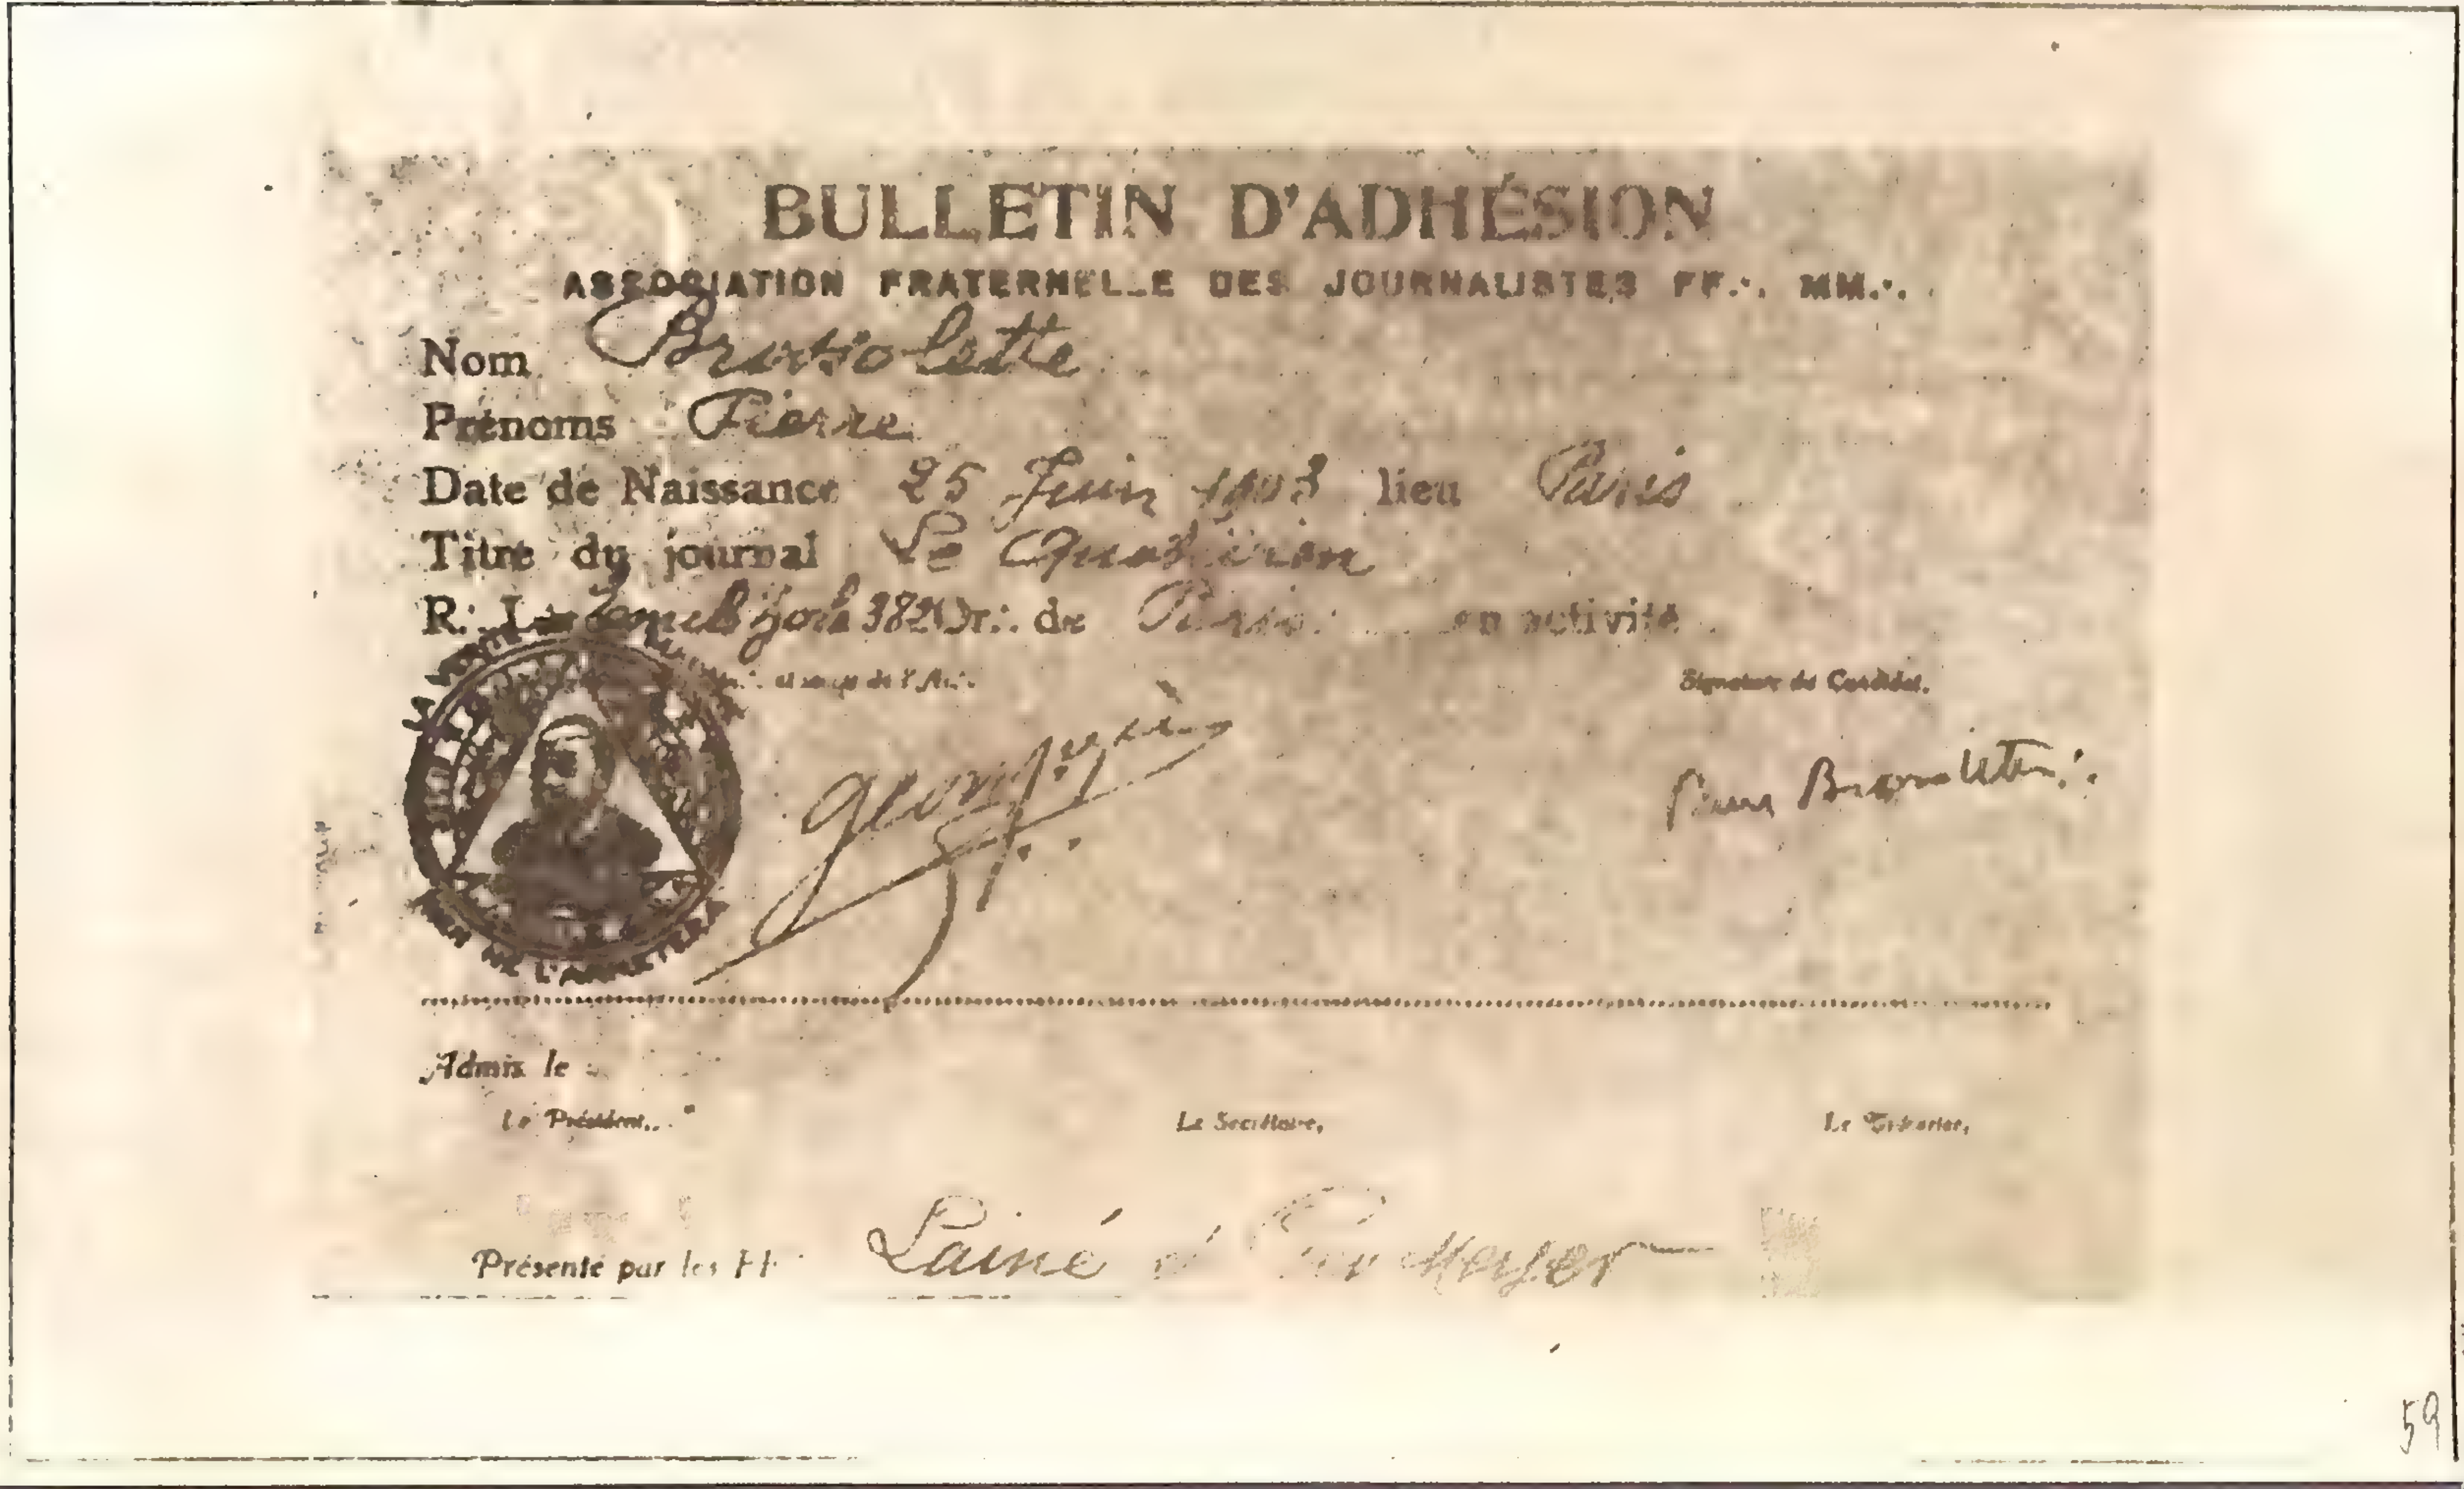 BULLETIN D'ADHÉSION
ASSOCIATION FRATERNELLE DES JOURNALISTES FF∴ MM∴
Nom Brossolette
Prénoms Pierre
Date de Naissance 25 Juin 1903 lieu Paris
Titre du journal Le Quotidien
R∴ L∴ 382 Or∴ de Paris en activité
Signature du Candidat.
Pierre Brossolette∴
DE L'
Admis le
Le Président,
Le Secrétaire,
Le Trésorier,
Présenté par les FF∴ Lainé Meyer
59